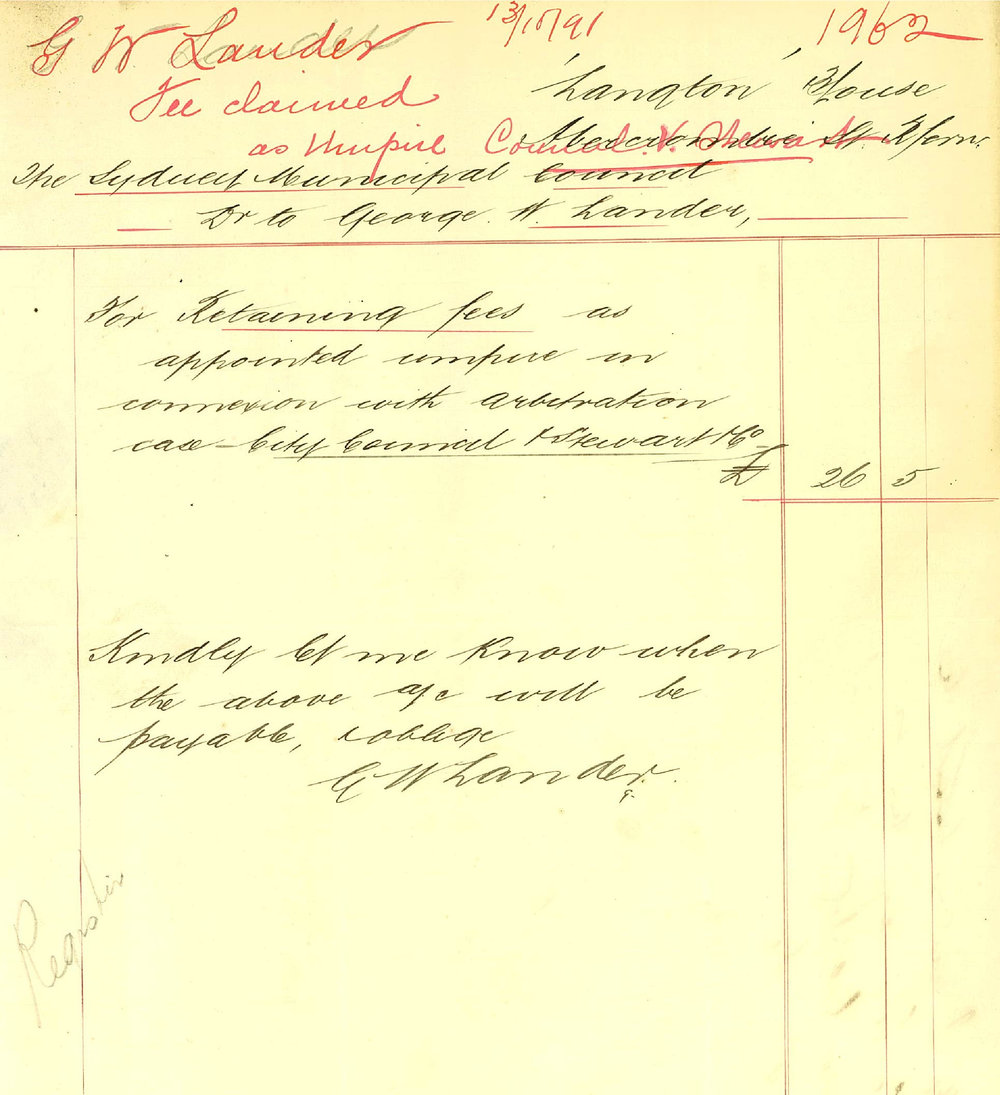 G W Lander 13/10/91 1962
Fee claimed
as Umpire Council v. Stewart
'Langton' House
Alexander St. Rfern.
The Sydney Municipal Council
Dr to George. W. Lander,
For Retaining fees as
appointed umpire in
connexion with arbitration
case - City Council & Stewart & Co
£ 26 5
Kindly let me know when
the above a/c will be
payable, & oblige
G W Lander.
Register